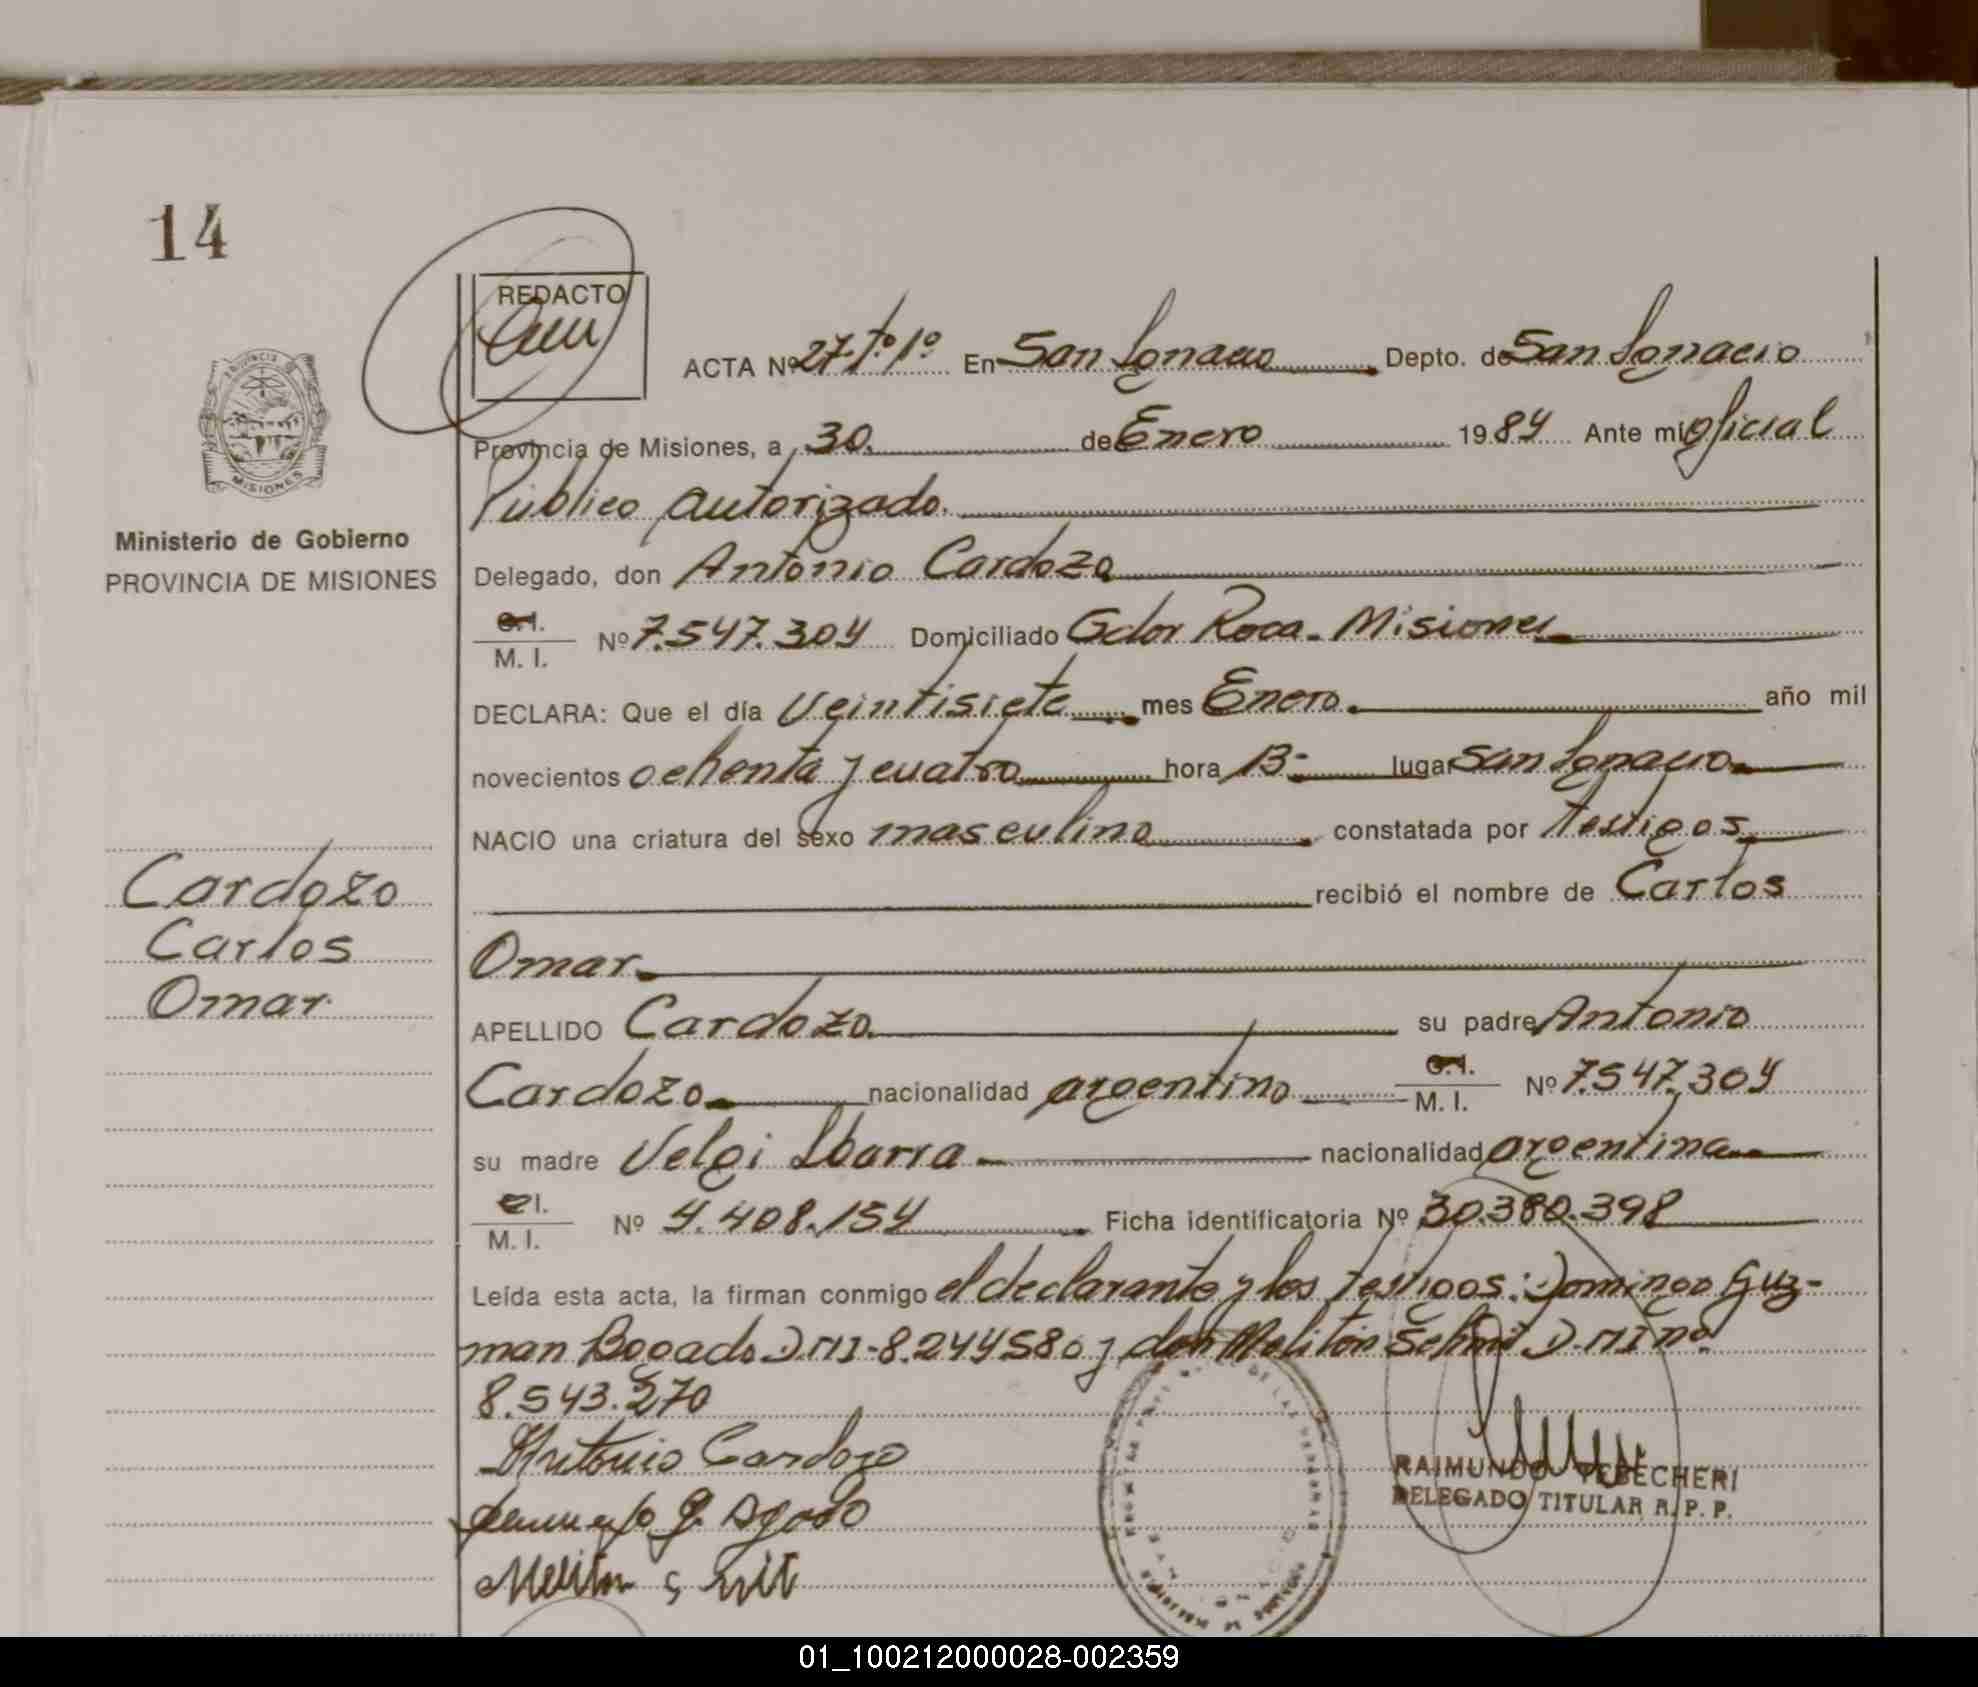 14
REDACTO
ACTA Nº 27-tº1º En San Ignacio Depto. de San Ignacio
Provincia de Misiones, a 30. de Enero 1984 Ante mi oficial
Público autorizado.
PROVINCIA
MISIONES
Ministerio de Gobierno
PROVINCIA DE MISIONES
Delegado, don Antonio Cardozo
C.I.
M. I. Nº 7.547.304 Domiciliado Gdor Roca - Misiones
DECLARA: Que el día Veintisiete mes Enero. año mil
novecientos ochenta y cuatro hora 13- lugar San Ignacio
NACIO una criatura del sexo masculino constatada por testigos
recibió el nombre de Carlos
Omar
Cardozo
Carlos
Omar
APELLIDO Cardozo su padre Antonio
Cardozo nacionalidad argentino C.I.
M. I. Nº 7.547.304
su madre Velgi Ibarra nacionalidad argentina
C.I.
M. I. Nº 4.408.154 Ficha identificatoria Nº 30.380.398
Leída esta acta, la firman conmigo el declarante y los testigos: Domingo Guz-
man Bogado D.N.I-8.244580 y don Meliton Schmit D.N.I nº
8.543.270
Antonio Cardozo
RAIMUNDO TEBECHERI
DELEGADO TITULAR R. P. P.
01_100212000028-002359